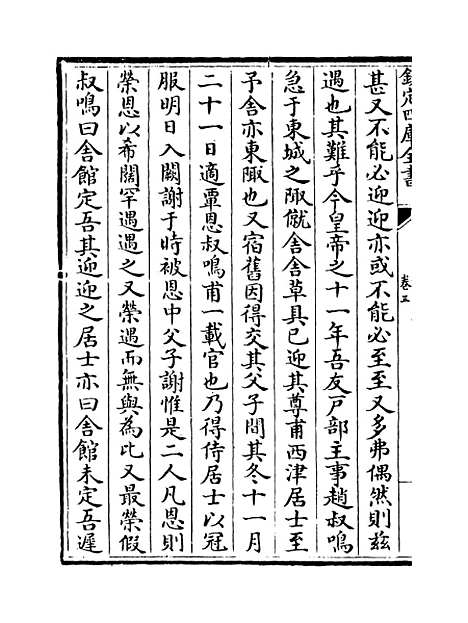 欽定四庫全書
卷三
甚又不能必迎迎亦或不能必至至又多弗偶然則茲
遇也其難乎今皇帝之十一年吾友戸部主事趙叔鳴
急于東城之陬僦舍舍草具已迎其尊甫西津居士至
予舍亦東陬也又宿舊因得交其父子間其冬十一月
二十一日適覃恩叔鳴甫一載官也乃得侍居士以冠
服明日入闕謝于時被恩中父子謝惟是二人凡恩則
榮恩以希闊罕遇遇之又榮遇而無與為比又最榮假
叔鳴曰舍館定吾其迎迎之居士亦曰舍館未定吾遲